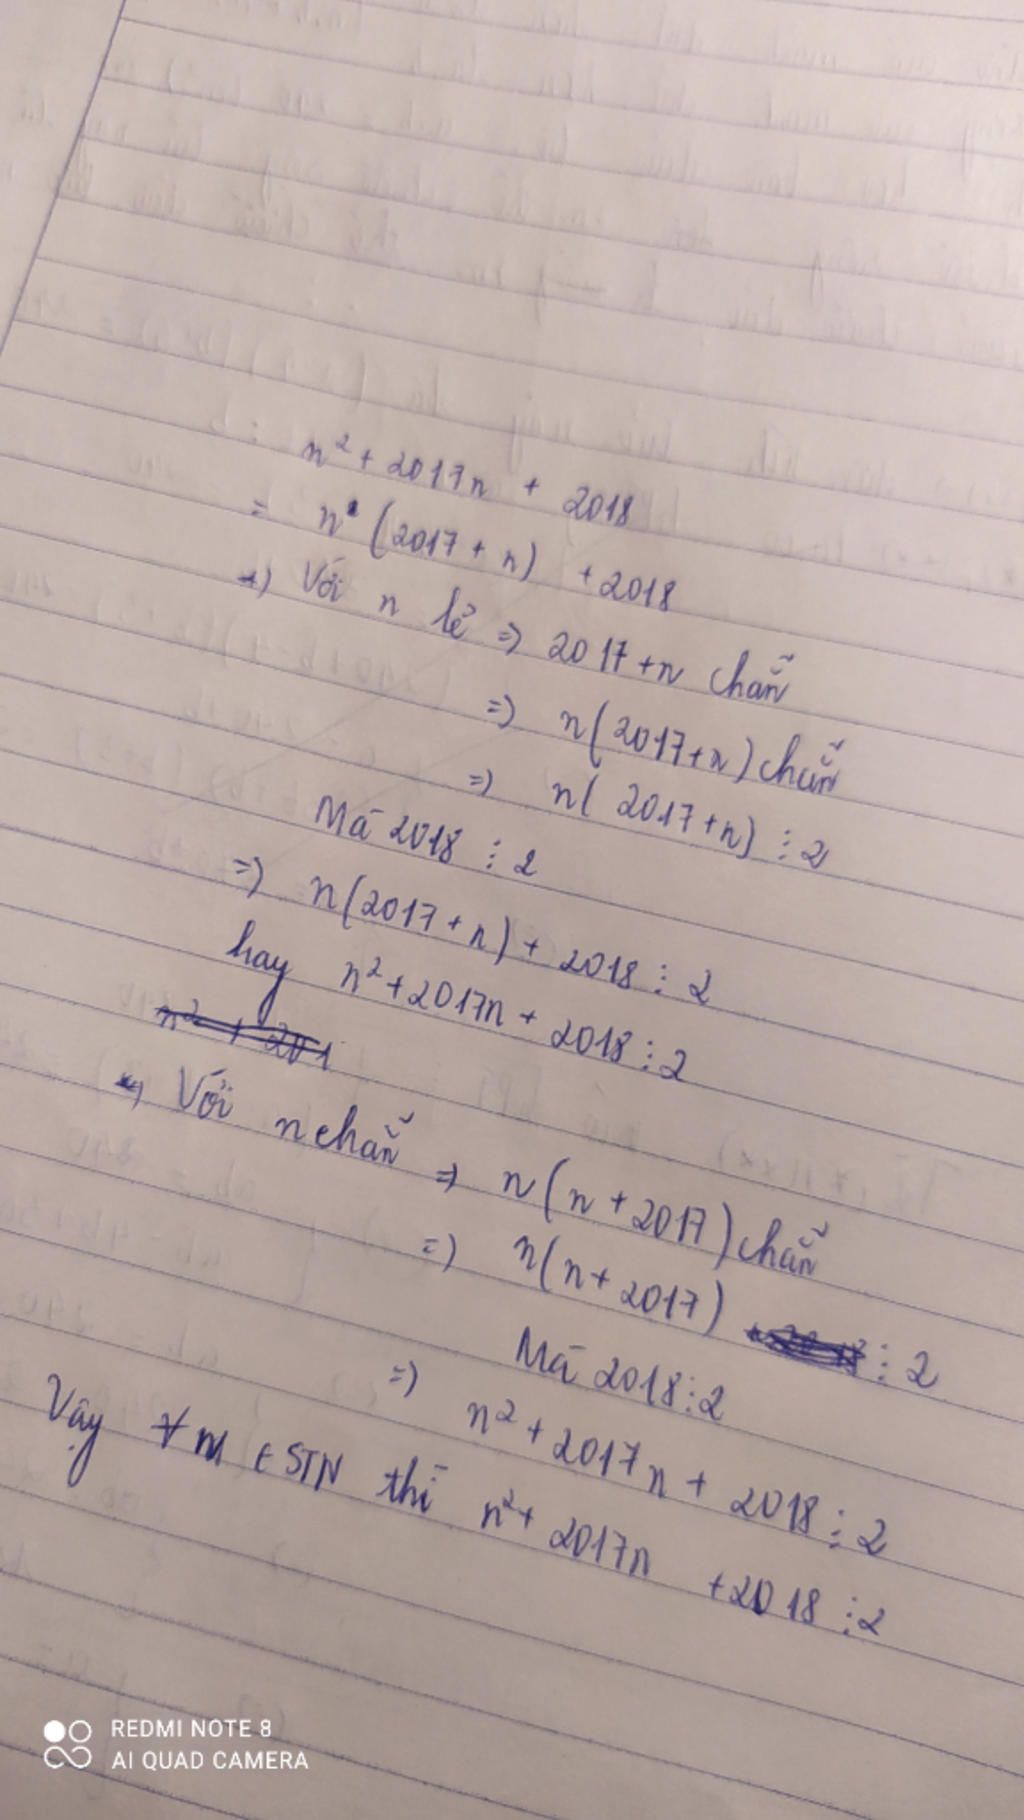 n² + 2017n + 2018
= n (2017 + n) + 2018
+) Với n lẻ => 2017+n chẵn
=> n(2017+n) chẵn
=> n( 2017+n) ⋮ 2
Mà 2018 ⋮ 2
=> n(2017+n) + 2018 ⋮ 2
hay n²+2017n + 2018 ⋮ 2
n² + 201
+) Với n chẵn => n(n+2017) chẵn
=> n(n+2017) ⋮ 2
Mà 2018 ⋮ 2
=> n² + 2017n + 2018 ⋮ 2
Vậy ∀ n ∈ STN thì n² + 2017n + 2018 ⋮ 2
REDMI NOTE 8
AI QUAD CAMERA